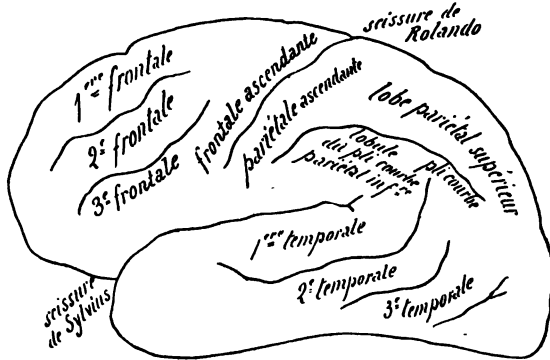 scissure de
Rolando
1ere frontale
2e frontale
3e frontale
frontale ascendante
pariétale ascendante
lobe pariétal supérieur
lobule
du pli courbe
pariétal infre
pli courbe
1ere temporale
2e temporale
3e temporale
scissure
de Sylvius